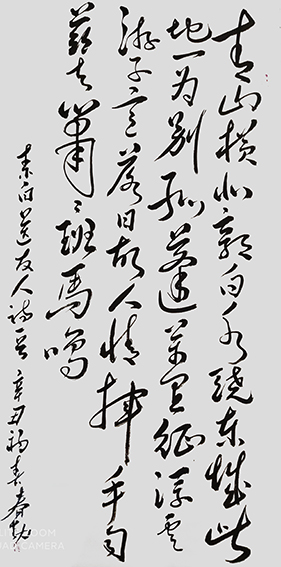 青山横北郭白水绕东城此
地一为别孤蓬万里征浮云
游子意落日故人情挥手自
兹去萧〻班马鸣
李白送友人诗一首 辛丑
CAMERA